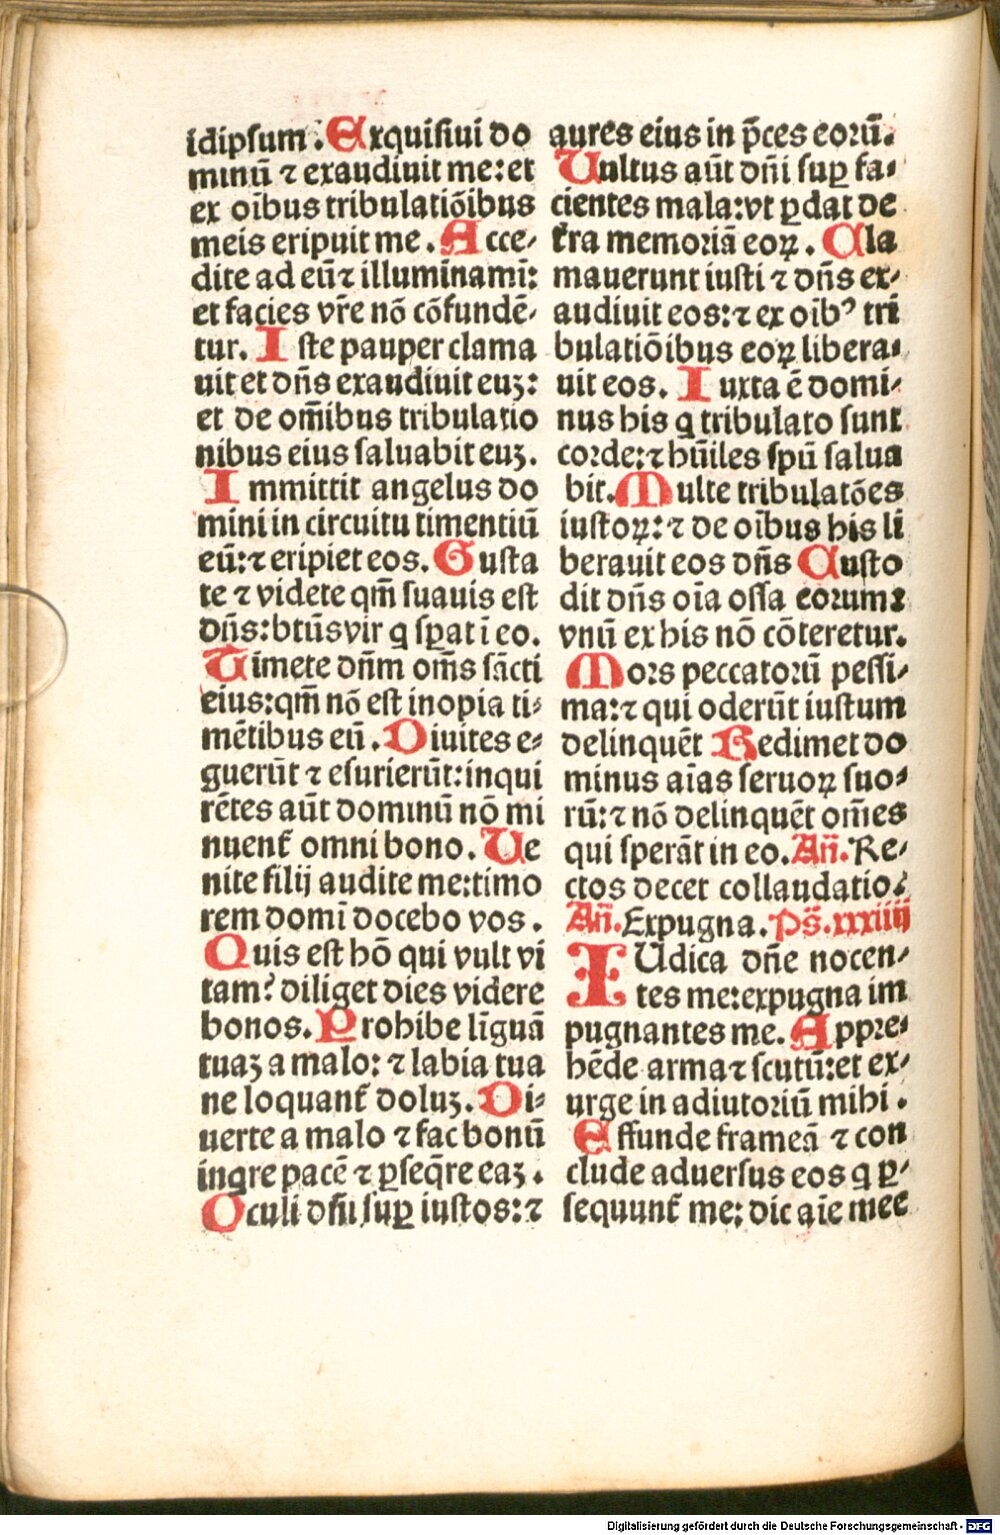 idipsum. Exquisiui do
minū ⁊ exaudiuit me: et
ex oībus tribulatiōibus
meis eripuit me. Acce-
dite ad eū ⁊ illuminamī:
et facies vr̄e nō cōfundē-
tur. Iste pauper clama
uit et dn̄s exaudiuit euꝫ:
et de om̄ibus tribulatio
nibus eius saluabit euꝫ.
Immittit angelus do
mini in circuitu timentiū
eū: ⁊ eripiet eos. Gusta
te ⁊ videte qm̄ suauis est
dn̄s: btūs vir q sꝑat ī eo.
Timete dn̄m om̄s sācti
eius: qm̄ nō est inopia ti-
mētibus eū. Diuites e-
guerūt ⁊ esurierūt: inqui
rētes aūt dominū nō mi
nuent̄ omni bono. Ue
nite filij audite me: timo
rem domī docebo vos.
Quis est hō qui vult vi
tam? diliget dies videre
bonos. Prohibe līguā
tuaꝫ a malo: ⁊ labia tua
ne loquant̄ doluꝫ. Di-
uerte a malo ⁊ fac bonū
inqre pacē ⁊ ꝑseq̄re eaꝫ.
Oculi dn̄i suꝑ iustos: ⁊
aures eius in p̄ces eorū.
Uultus aūt dn̄i suꝑ fa-
cientes mala: vt ꝑdat de
t̄ra memoriā eoꝝ. Cla
mauerunt iusti ⁊ dn̄s ex-
audiuit eos: ⁊ ex oībꝰ tri
bulatiōibus eoꝝ libera-
uit eos. Iuxta ē domi-
nus his q tribulato sunt
corde: ⁊ hūiles spū salua
bit. Multe tribulatōes
iustoꝝ: ⁊ de oībus his li
berauit eos dn̄s Custo
dit dn̄s oīa ossa eorum:
vnū ex his nō cōteretur.
Mors peccatorū pessi-
ma: ⁊ qui oderūt iustum
delinquēt Redimet do
minus aīas seruoꝝ suo-
rū: ⁊ nō delinquēt om̄es
qui sperāt in eo. An̄. Re-
ctos decet collaudatio.
An̄. Expugna. Ps̄. xxxiiij
IUdica dn̄e nocen-
tes me: expugna im
pugnantes me. Appre-
hēde arma ⁊ scutū: et ex-
urge in adiutoriū mihi.
Effunde frameā ⁊ con
clude aduersus eos q ꝑ-
sequunt̄ me: dic aīe mee
Digitalisierung gefördert durch die Deutsche Forschungsgemeinschaft - DFG